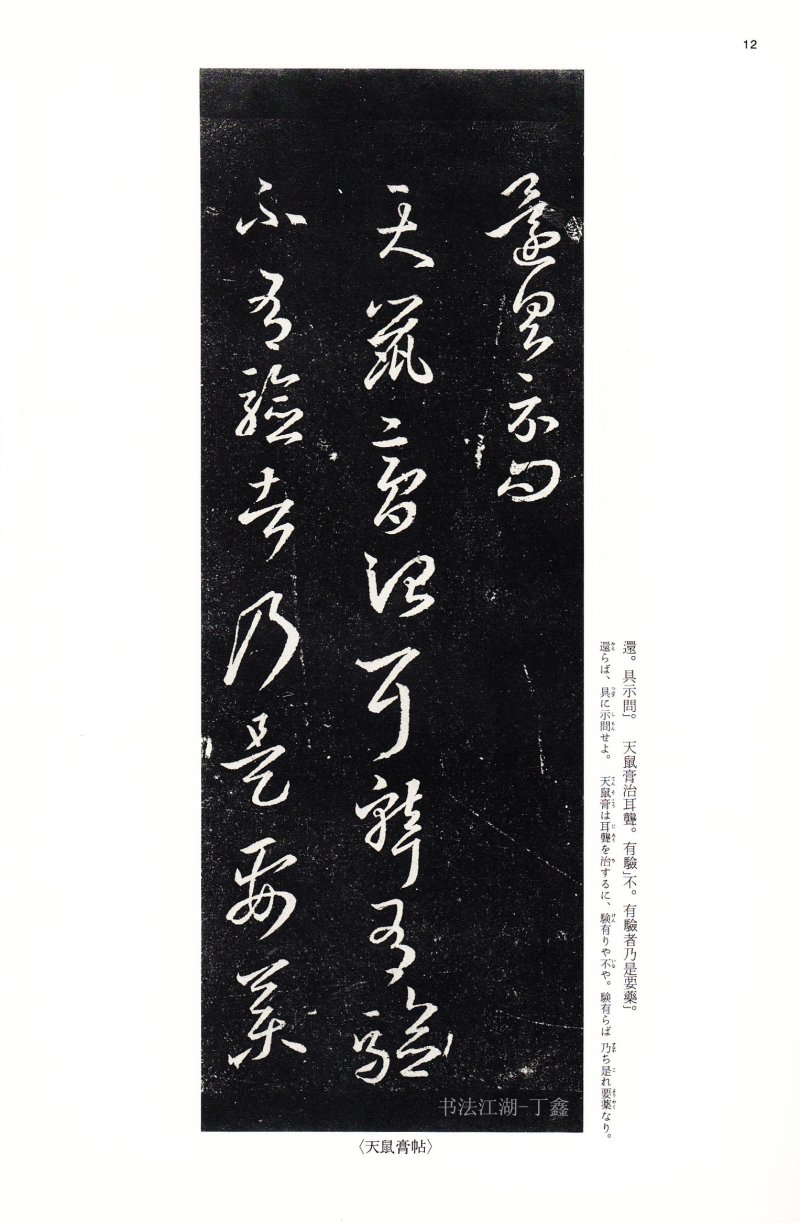 12
還具示問
天鼠膏治耳聾有驗
不有驗者乃是要藥
還。具示問」。　天鼠膏治耳聾。有驗」不。有驗者乃是要藥」。
還らば、具に示問せよ。　天鼠膏は耳聾を治するに、驗有りや不や。驗有らば 乃ち是れ要薬なり。
书法江湖-丁鑫
〈天鼠膏帖〉